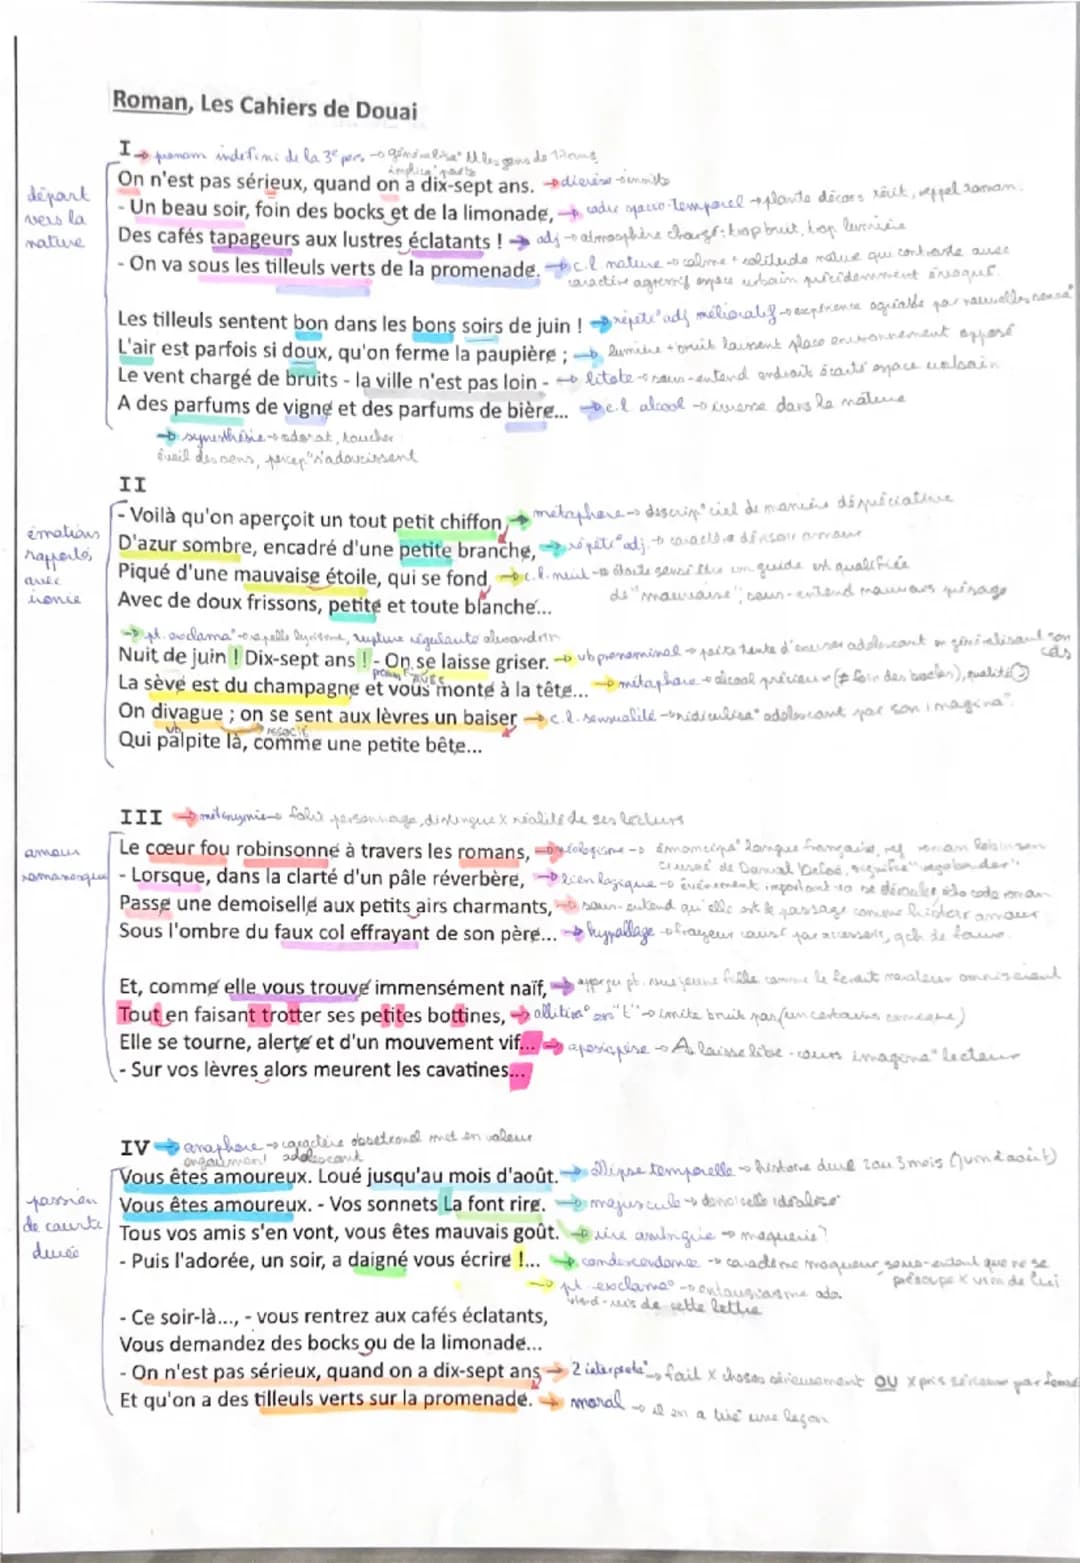 Roman, Les Cahiers de Douai
I → pronom indéfini de la 3e pers → généralisa° les gens de 17ans
implica° poète
départ vers la nature
On n'est pas sérieux, quand on a dix-sept ans. → diérèse → insiste
- Un beau soir, foin des bocks et de la limonade, → cadre spacio-temporel → plante décors récit, rappel roman.
Des cafés tapageurs aux lustres éclatants ! → adj → atmosphère charge: trop bruit, trop lumière
- On va sous les tilleuls verts de la promenade. → c.l. nature → calme + solitude nature qui contraste avec
caractère agressif espace urbain précédemment évoqué.
Les tilleuls sentent bon dans les bons soirs de juin ! → répété° adj mélioratif → expérience agréable par nouvelles
L'air est parfois si doux, qu'on ferme la paupière ; → lumière + bruit laissent place environnement opposé
Le vent chargé de bruits - la ville n'est pas loin - → litote → sous-entend endroit écarté espace urbain
A des parfums de vigne et des parfums de bière... → c.l. alcool → ivresse dans la nature
→ synesthésie → odorat, toucher
éveil des sens, percep° s'adoucissent
II
émotions rapportés avec ironie
- Voilà qu'on aperçoit un tout petit chiffon → métaphore → descrip° ciel de manière dépréciative
D'azur sombre, encadré d'une petite branche, → répété° adj. → caractère dérisoir amour
Piqué d'une mauvaise étoile, qui se fond → c.l. nuit → étoile sensé être un guide est qualifiée
de "mauvaise", sous-entend mauvais présage
Avec de doux frissons, petite et toute blanche...
→ pt. exclama° → rappelle lyrisme, rupture régularité alexandrin
Nuit de juin ! Dix-sept ans ! - On se laisse griser. → vb pronominal → poète tente d'excuser adolescant en généralisant son cas
La sève est du champagne et vous monte à la tête... → métaphore → alcool précieux (≠ foin des bocks), qualité
On divague ; on se sent aux lèvres un baiser → c.l. sensualité → ridiculisa° adolescant par son imagina°.
Qui palpite là, comme une petite bête...
III → métonymie → folie personnage, distingue x réalité de ses lectures
amour romanesque
Le cœur fou robinsonne à travers les romans, → néologisme → émancipa° langue française, ref roman Robinson
Crusoé de Daniel Defoe, signifie "vagabonder"
- Lorsque, dans la clarté d'un pâle réverbère, → lien logique → événement important va se dérouler, code roman
Passe une demoiselle aux petits airs charmants, → sous-entend qu'elle est de passage comme histoire amour
Sous l'ombre du faux col effrayant de son père... → hypallage → frayeur causé par accessoire, qch de faux.
Et, comme elle vous trouve immensément naïf, → aperçu pt. vue jeune fille comme le ferait narrateur omniscient
Tout en faisant trotter ses petites bottines, → allitéra° en "t" → imite bruit pas (un certain comique)
Elle se tourne, alerte et d'un mouvement vif... → aposiopèse → A laisse libre-cours imagina° lecteur
- Sur vos lèvres alors meurent les cavatines...
IV → anaphore → caractère obsetionel met en valeur
engouement adolescant
passion de courte durée
Vous êtes amoureux. Loué jusqu'au mois d'août. → ellipse temporelle → histoire dure 2 ou 3 mois (juin à août)
Vous êtes amoureux. - Vos sonnets La font rire. → majuscule → demoiselle idéalisé°
Tous vos amis s'en vont, vous êtes mauvais goût. → rire ambiguïe → moquerie?
- Puis l'adorée, un soir, a daigné vous écrire !... → condescendance → caractère moqueur, sous-entend que ne se
préocupe x vrm de lui
→ pt exclama° → entousiasme ado.
vis-à-vis de cette lettre
- Ce soir-là..., - vous rentrez aux cafés éclatants,
Vous demandez des bocks ou de la limonade...
- On n'est pas sérieux, quand on a dix-sept ans → 2 interpréta° → fait x choses sérieusement OU x pris sérieux par
Et qu'on a des tilleuls verts sur la promenade. → moral → il en a tiré une leçon